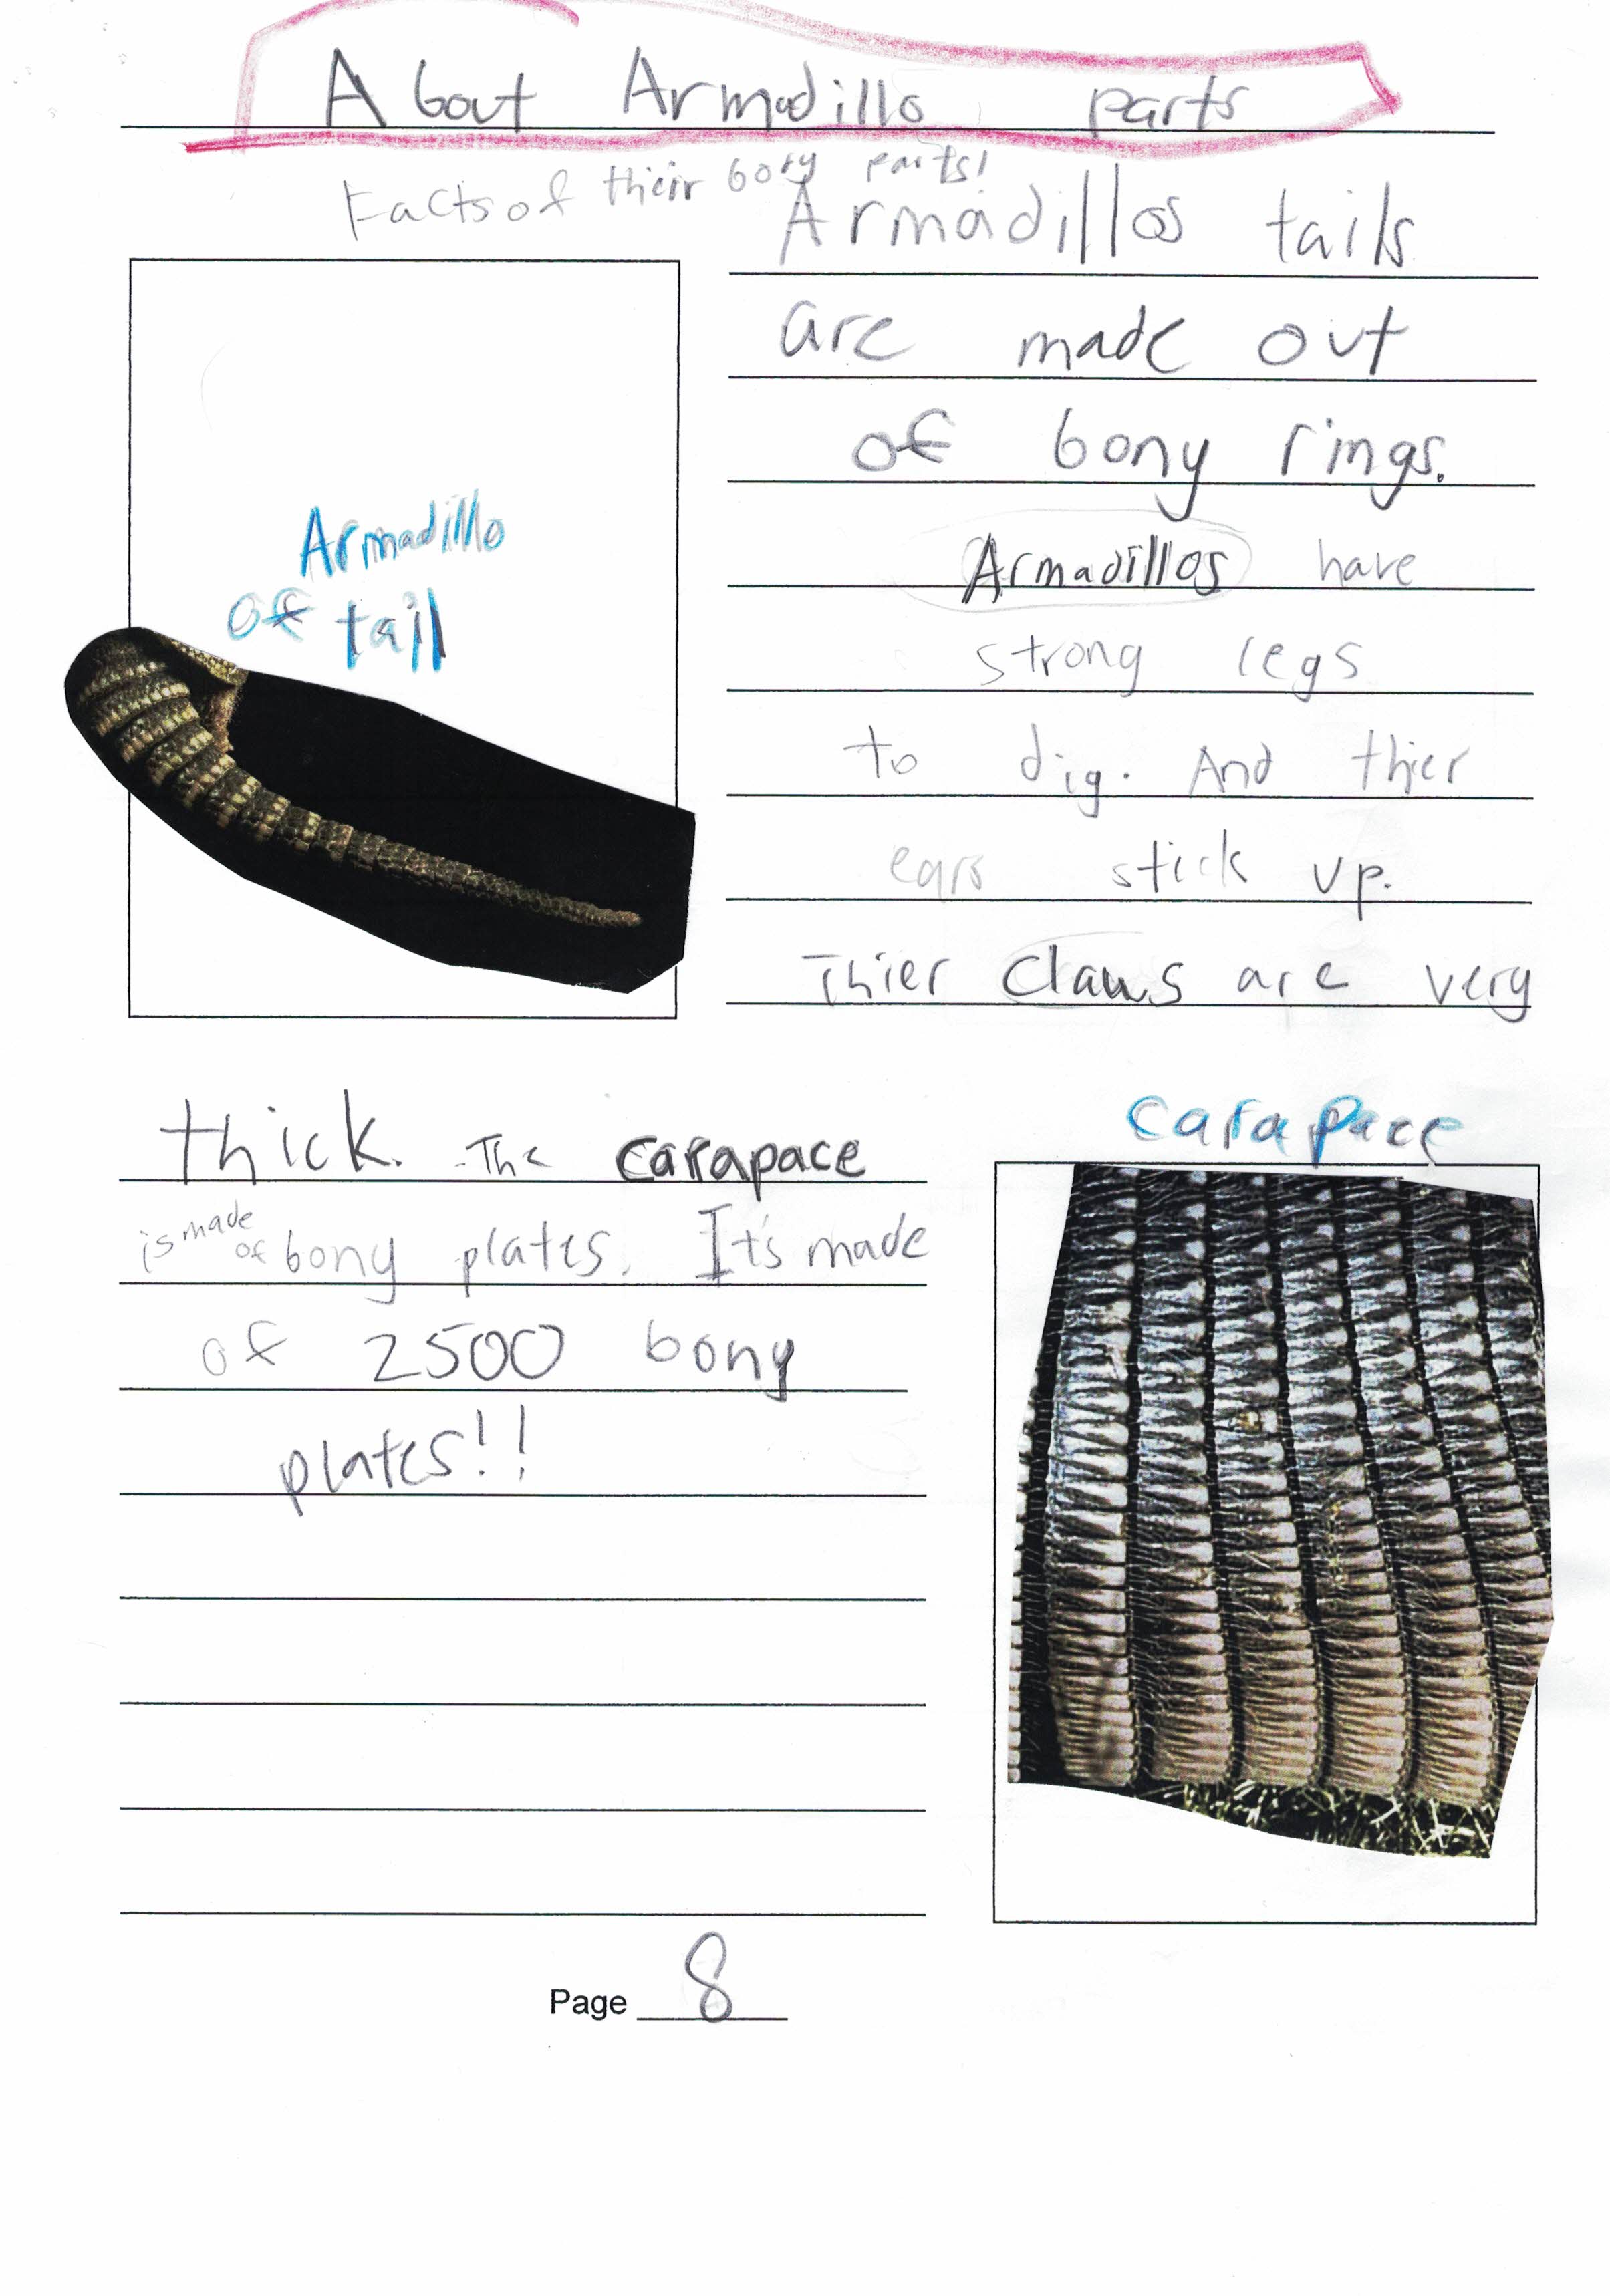 About Armadillo parts
Facts of their bony parts!
Armadillos tails
are made out
of bony rings.
Armadillos have
strong legs
to dig. And thier
ears stick up.
Thier claws are very
Armadillo
of tail
thick. The carapace
is made of bony plates. It's made
of 2500 bony
plates!!
carapace
Page 8